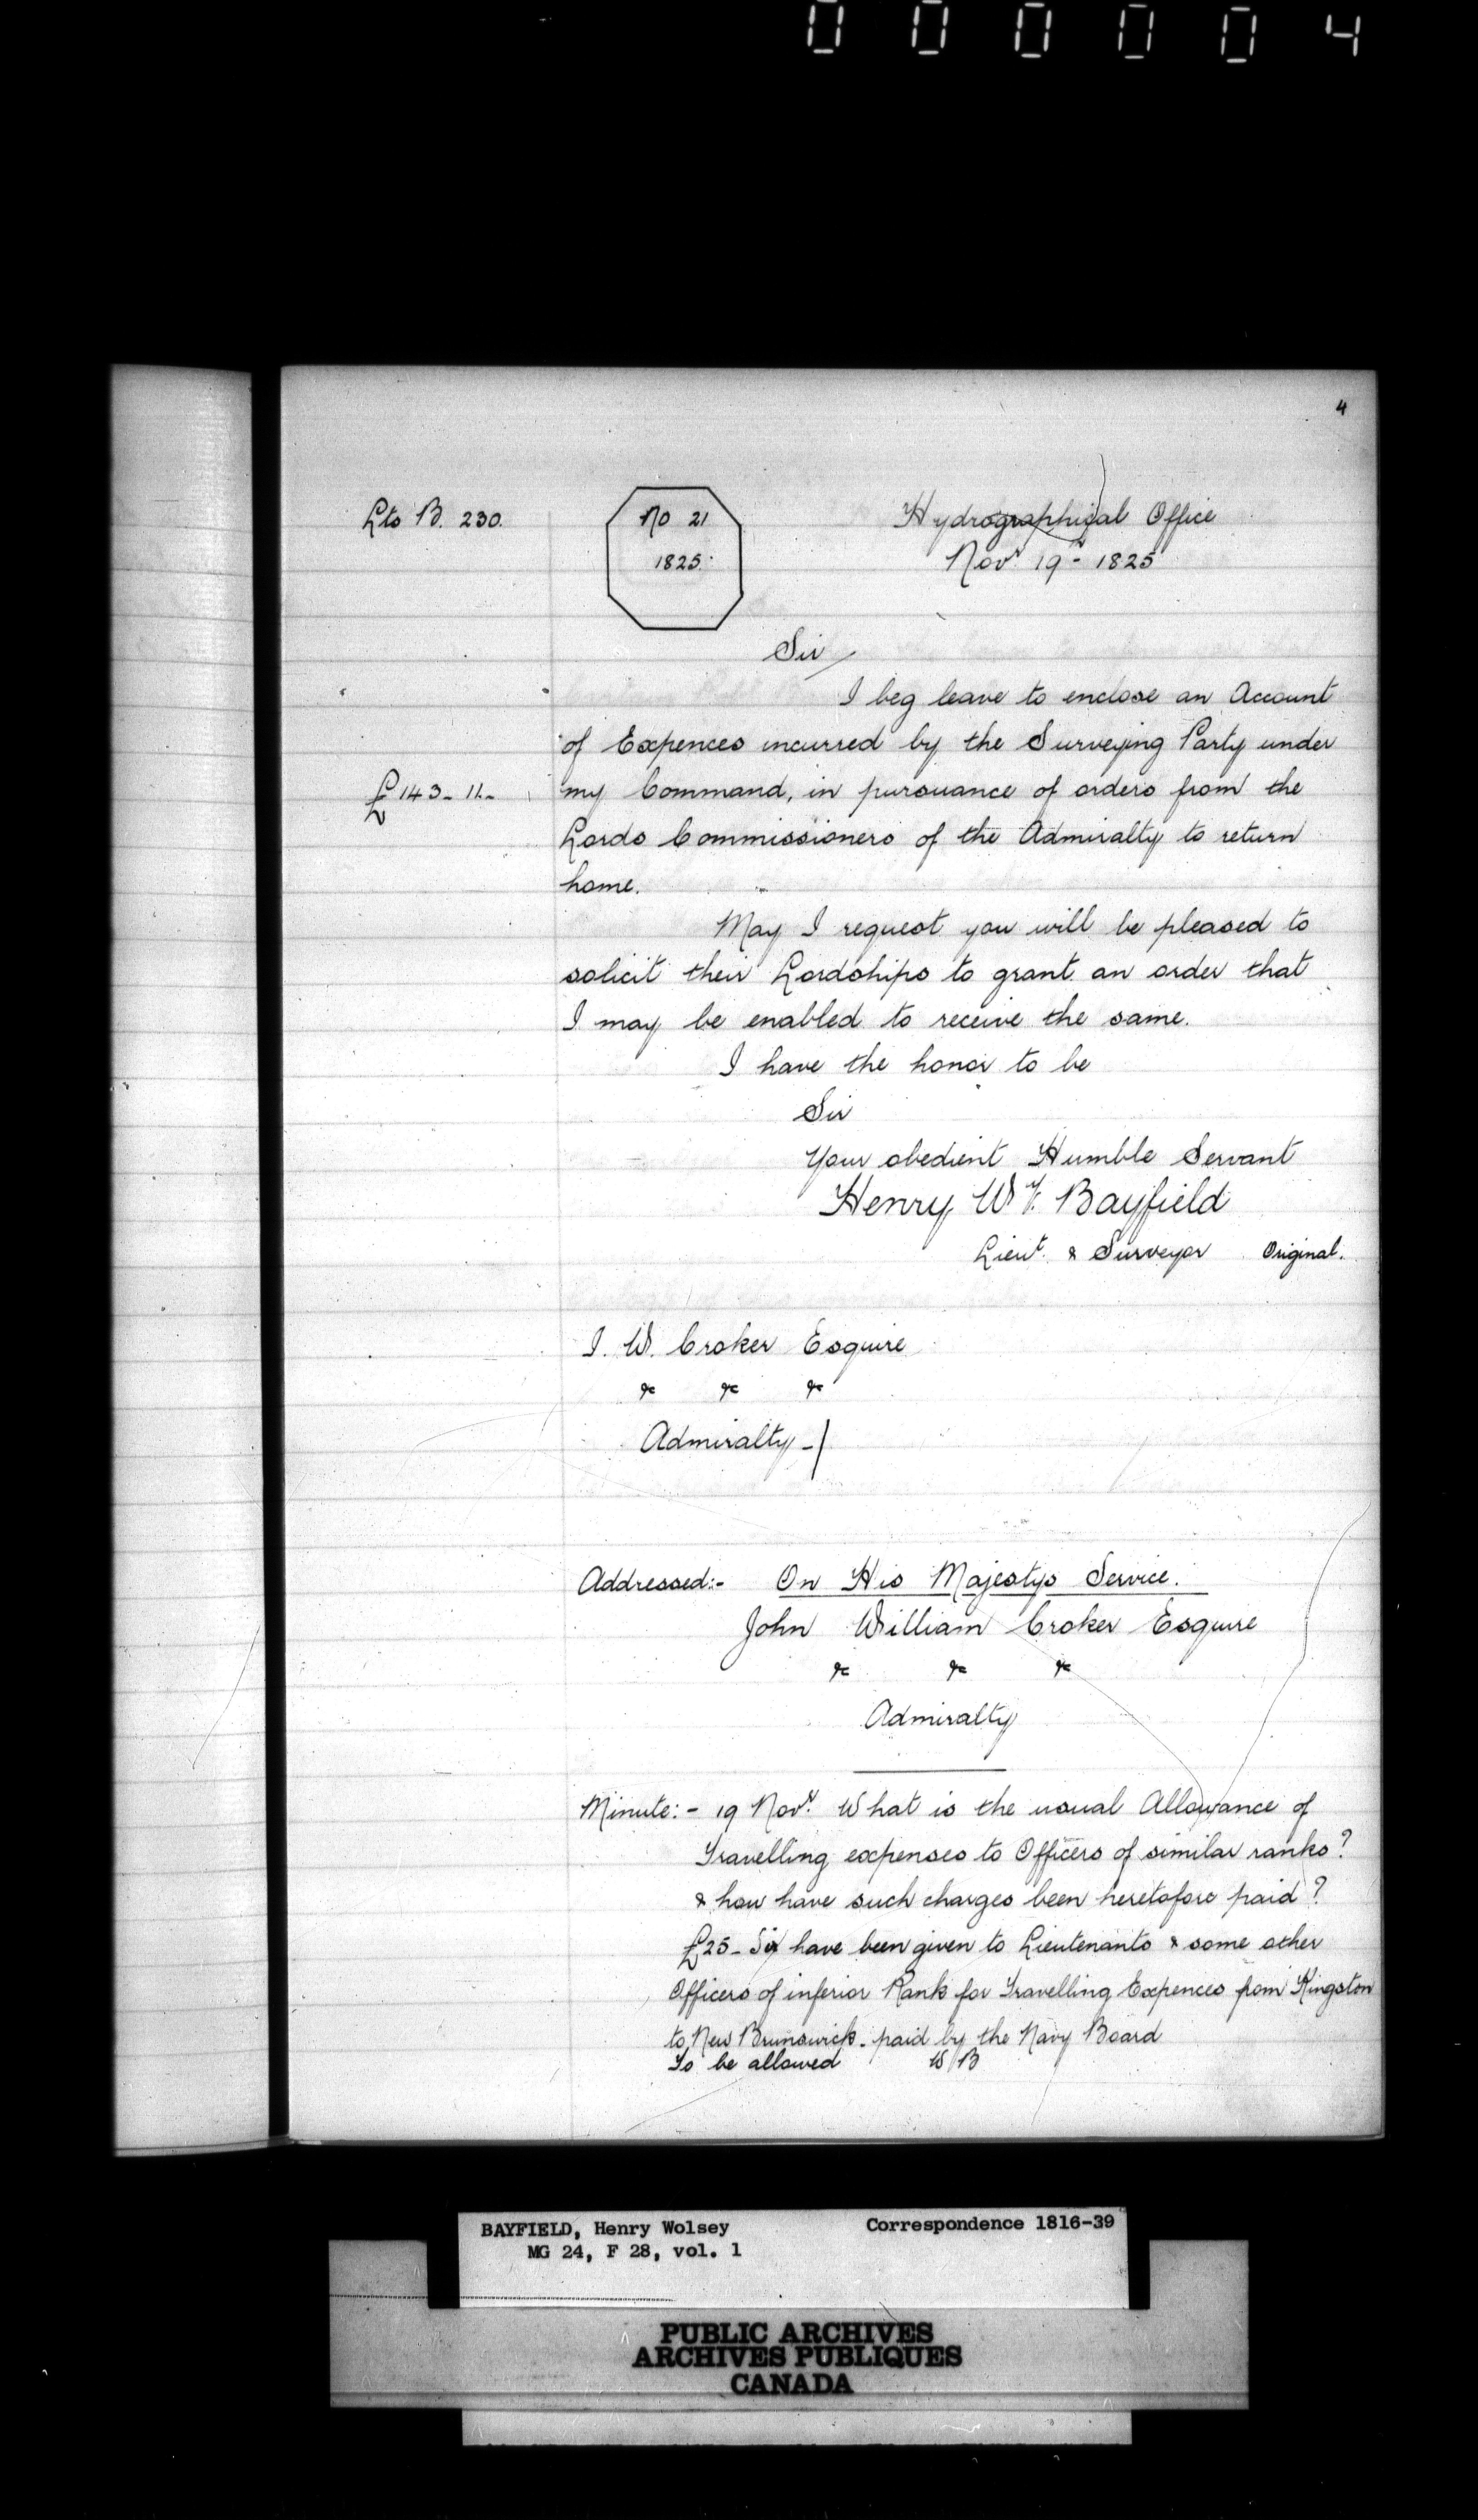 000004
4
Lts B. 230.
No 21
1825.
Hydrographical Office
Novr 19 - 1825
Sir
I beg leave to enclose an Account
of Expences incurred by the Surveying Party under
£143-11-
my Command, in pursuance of orders from the
Lords Commissioners of the Admiralty to return
home.
May I request you will be pleased to
solicit their Lordships to grant an order that
I may be enabled to receive the same.
I have the honor to be
Sir
Your obedient Humble Servant
Henry W Bayfield
Lieut. & Surveyor Original.
I. W. Croker Esquire
&c &c &c
Admiralty -
Addressed:- On His Majestys Service.
John William Croker Esquire
&c &c &c
Admiralty
Minute:- 19 Novr. What is the usual Allowance of
Travelling expenses to Officers of similar ranks?
& how have such charges been heretofore paid?
£25- have been given to Lieutenants & some other
Officers of inferior Rank for Travelling Expences from Kingston
to New Brunswick - paid by the Navy Board
To be allowed W B
BAYFIELD, Henry Wolsey Correspondence 1816-39
MG 24, F 28, vol. 1
PUBLIC ARCHIVES
ARCHIVES PUBLIQUES
CANADA